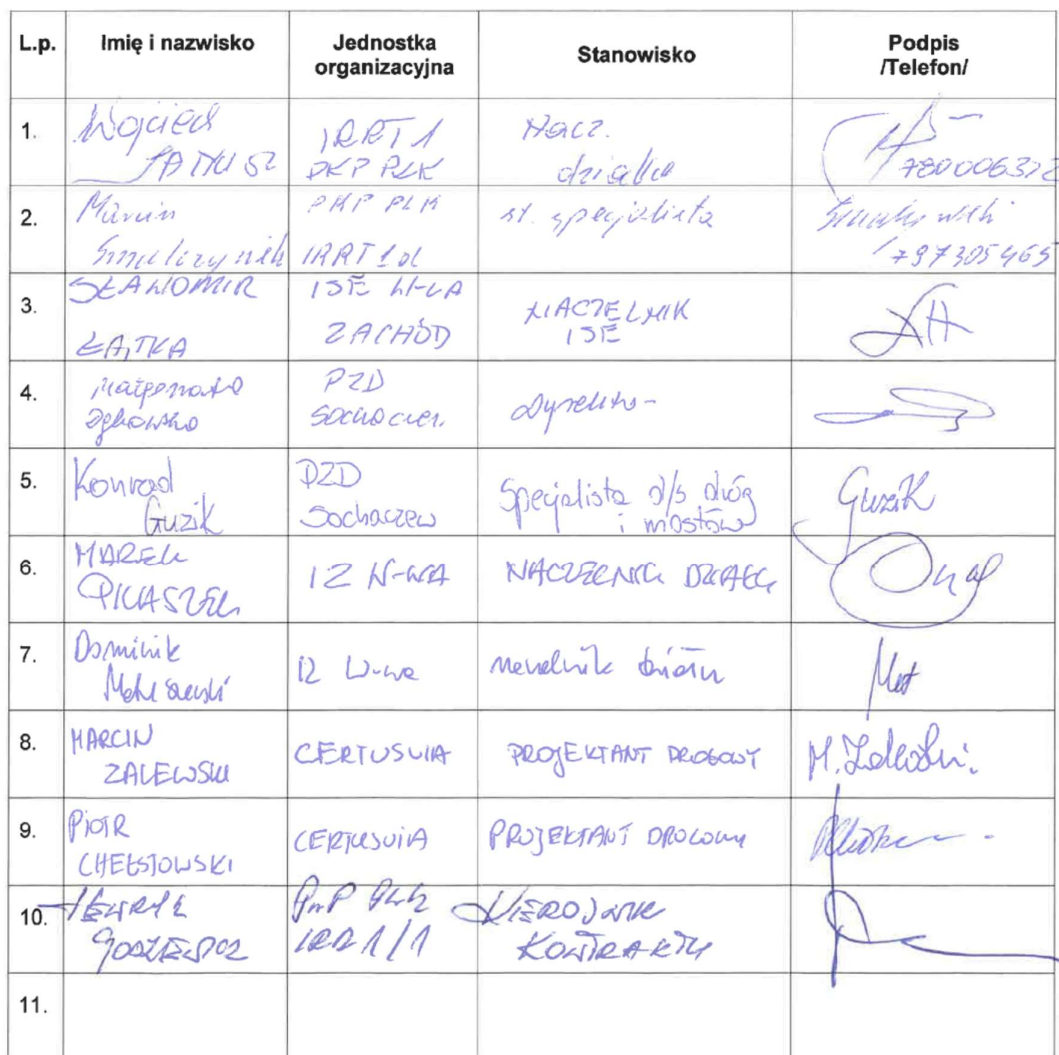 L.p. Imię i nazwisko Jednostka organizacyjna Stanowisko Podpis /Telefon/
1. Wojciech IRRT1 PKP PLK Nacz. działu 780006372
2. Marcin Smulczyński PKP PLK IRRT1d st. specjalista 797305465
3. SŁAWOMIR ŁĄTKA ISE W-WA ZACHÓD NACZELNIK ISE
4. Małgorzata PZD Sochaczew Dyrektor
5. Konrad Guzik PZD Sochaczew Specjalista d/s dróg i mostów Guzik
6. MAREK IZ W-WA NACZELNIK DZIAŁU
7. Dominik IZ W-wa naczelnik działu
8. MARCIN ZALEWSKI CERTUSVIA PROJEKTANT DROGOWY M. Zalewski
9. PIOTR CHEŁSTOWSKI CERTUSVIA PROJEKTANT DROGOWY
10. HENRYK PKP PLK IRR1/1 KIEROWNIK KONTRAKTU
11.